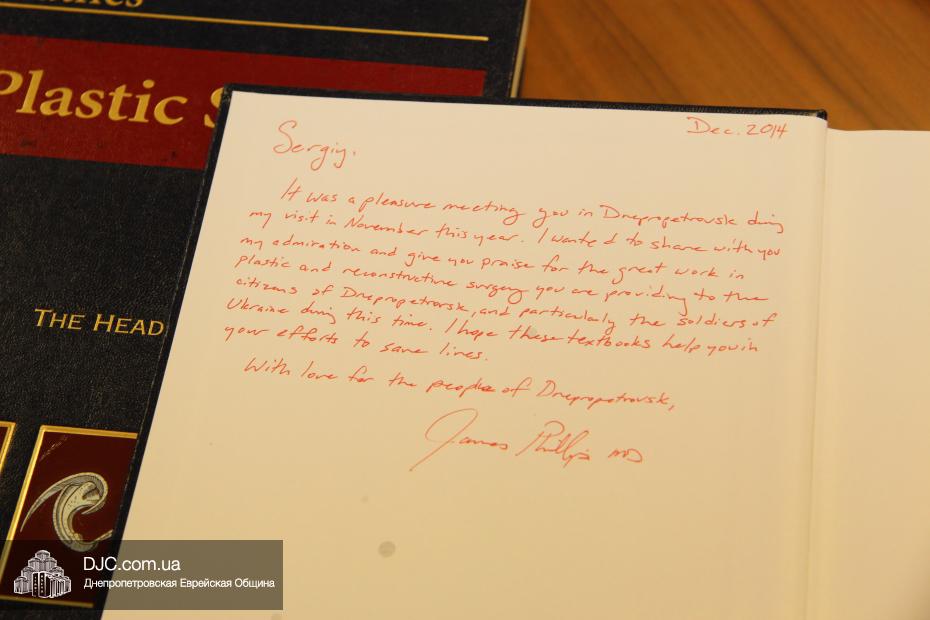 Plastic S
THE HEAD
Dec. 2014
Sergiy,
It was a pleasure meeting you in Dnepropetrovsk during
my visit in November this year. I wanted to share with you
my admiration and give you praise for the great work in
plastic and reconstructive surgery you are providing to the
citizens of Dnepropetrovsk, and particularly the soldiers of
Ukraine during this time. I hope these textbooks help you in
your efforts to save lives.
With love for the people of Dnepropetrovsk,
James Phillips MD
DJC.com.ua
Днепропетровская Еврейская Община